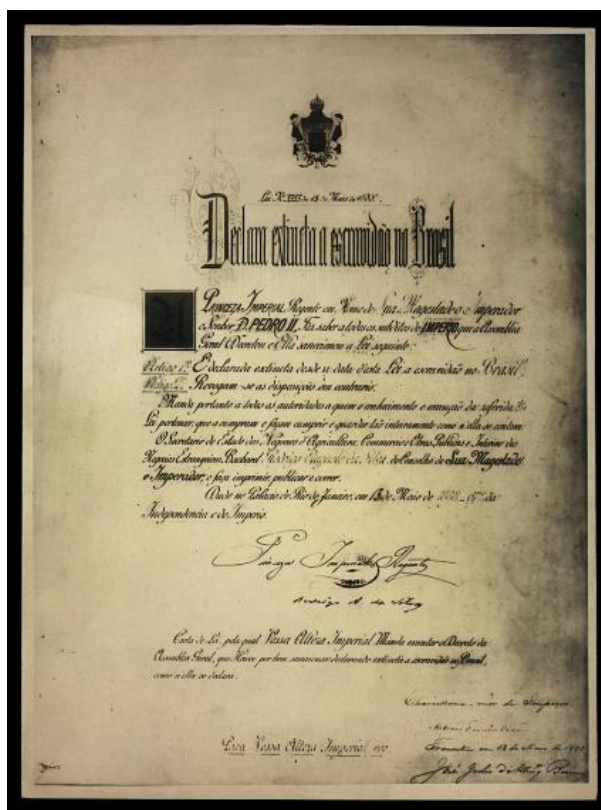 Lei Nº 3353 de 13 de Maio de 1888.
Declara extincta a escravidão no Brasil
A PRINCEZA IMPERIAL Regente em Nome de Sua Magestade o Imperador
o Senhor D. PEDRO II, Faz saber a todos os subditos do IMPERIO que a Assembléa
Geral Decretou e Ella sanccionou a Lei seguinte:
Artigo 1º É declarada extincta desde a data d'esta Lei a escravidão no Brasil.
Revogam-se as disposições em contrario.
Manda portanto a todas as autoridades a quem o conhecimento e execução da referida
Lei pertencer, que a cumpram e façam cumprir e guardar tão inteiramente como n'ella se contem
O Secretario de Estado dos Negocios d'Agricultura, Commercio e Obras Publicas e Interino dos
Negocios Estrangeiros, Bacharel Rodrigo Augusto da Silva, do Conselho de Sua Magestade
o Imperador, o faça imprimir, publicar e correr.
Dado no Palacio do Rio de Janeiro, em 13 de Maio de 1888 - 67º da
Independencia e do Imperio.
Princeza Imperial Regente
Rodrigo A. da Silva
Carta de Lei, pela qual Vossa Alteza Imperial Manda executar o Decreto da
Assembléa Geral, que Houve por bem sanccionar declarando extincta a escravidão no Brasil,
como n'ella se declara.
Chancellaria-mór do Imperio
Para Vossa Alteza Imperial ver.
Transitou em 13 de Maio de 1888
José Julio de